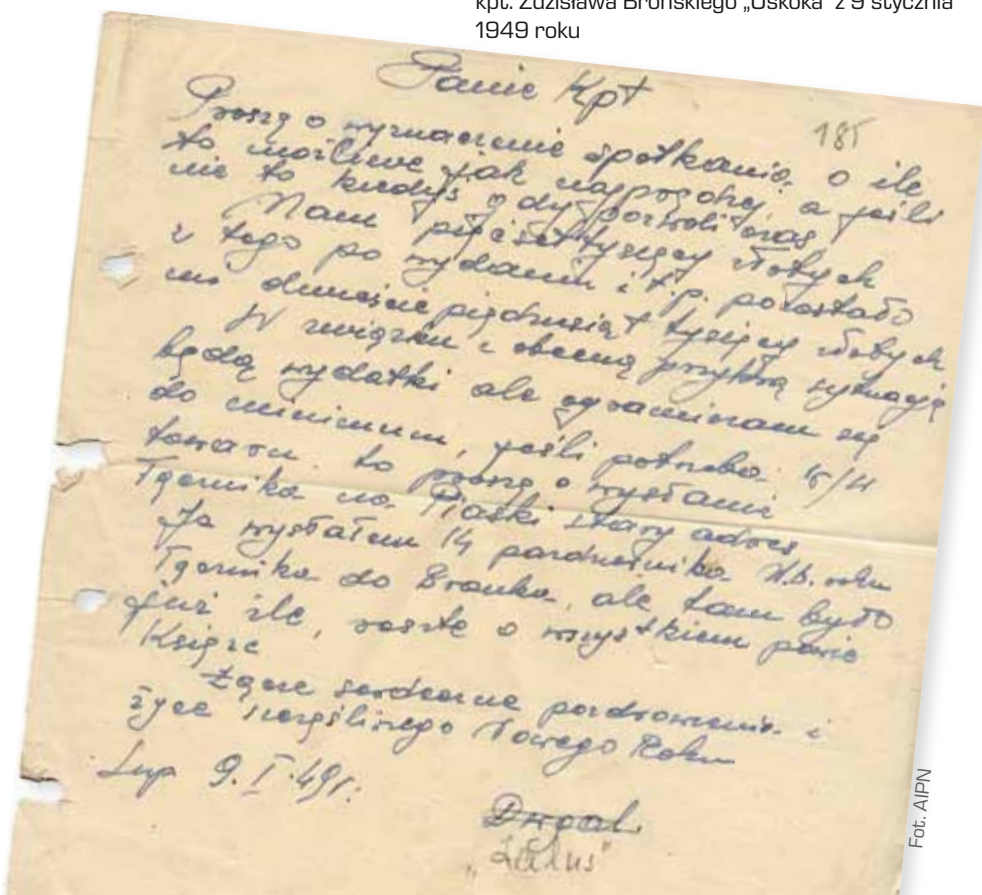 kpt. Zdzisława Brońskiego „Uskoka” z 9 stycznia
1949 roku
Panie Kpt
185
Proszę o wyznaczenie spotkania, o ile
to możliwe jak najprędzej, a jeśli
nie to kiedyś gdy pozwoli czas
Mam pięćset tysięcy złotych
z tego po wydaniu i t.p. pozostało
mi dwieście pięćdziesiąt tysięcy złotych
W związku z obecną przykrą sytuacją
będą wydatki ale ograniczam się
do minimum, jeśli potrzeba
towaru. to proszę o wysłanie
na Piaski stary adres
Ja wysłałem 14 października U.B. roku
do Bronka, ale tam było
już źle, resztę o wszystkiem powie
Księże
Łączę serdeczne pozdrowienia i
życzę szczęśliwego Nowego Roku
9.I.49r.
„Żaluś”
Fot. AIPN